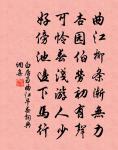 曲江柳条渐无力
杏园伯劳初有声
可怜春浅游人少
好傍池边下马行
白居易曲江早春